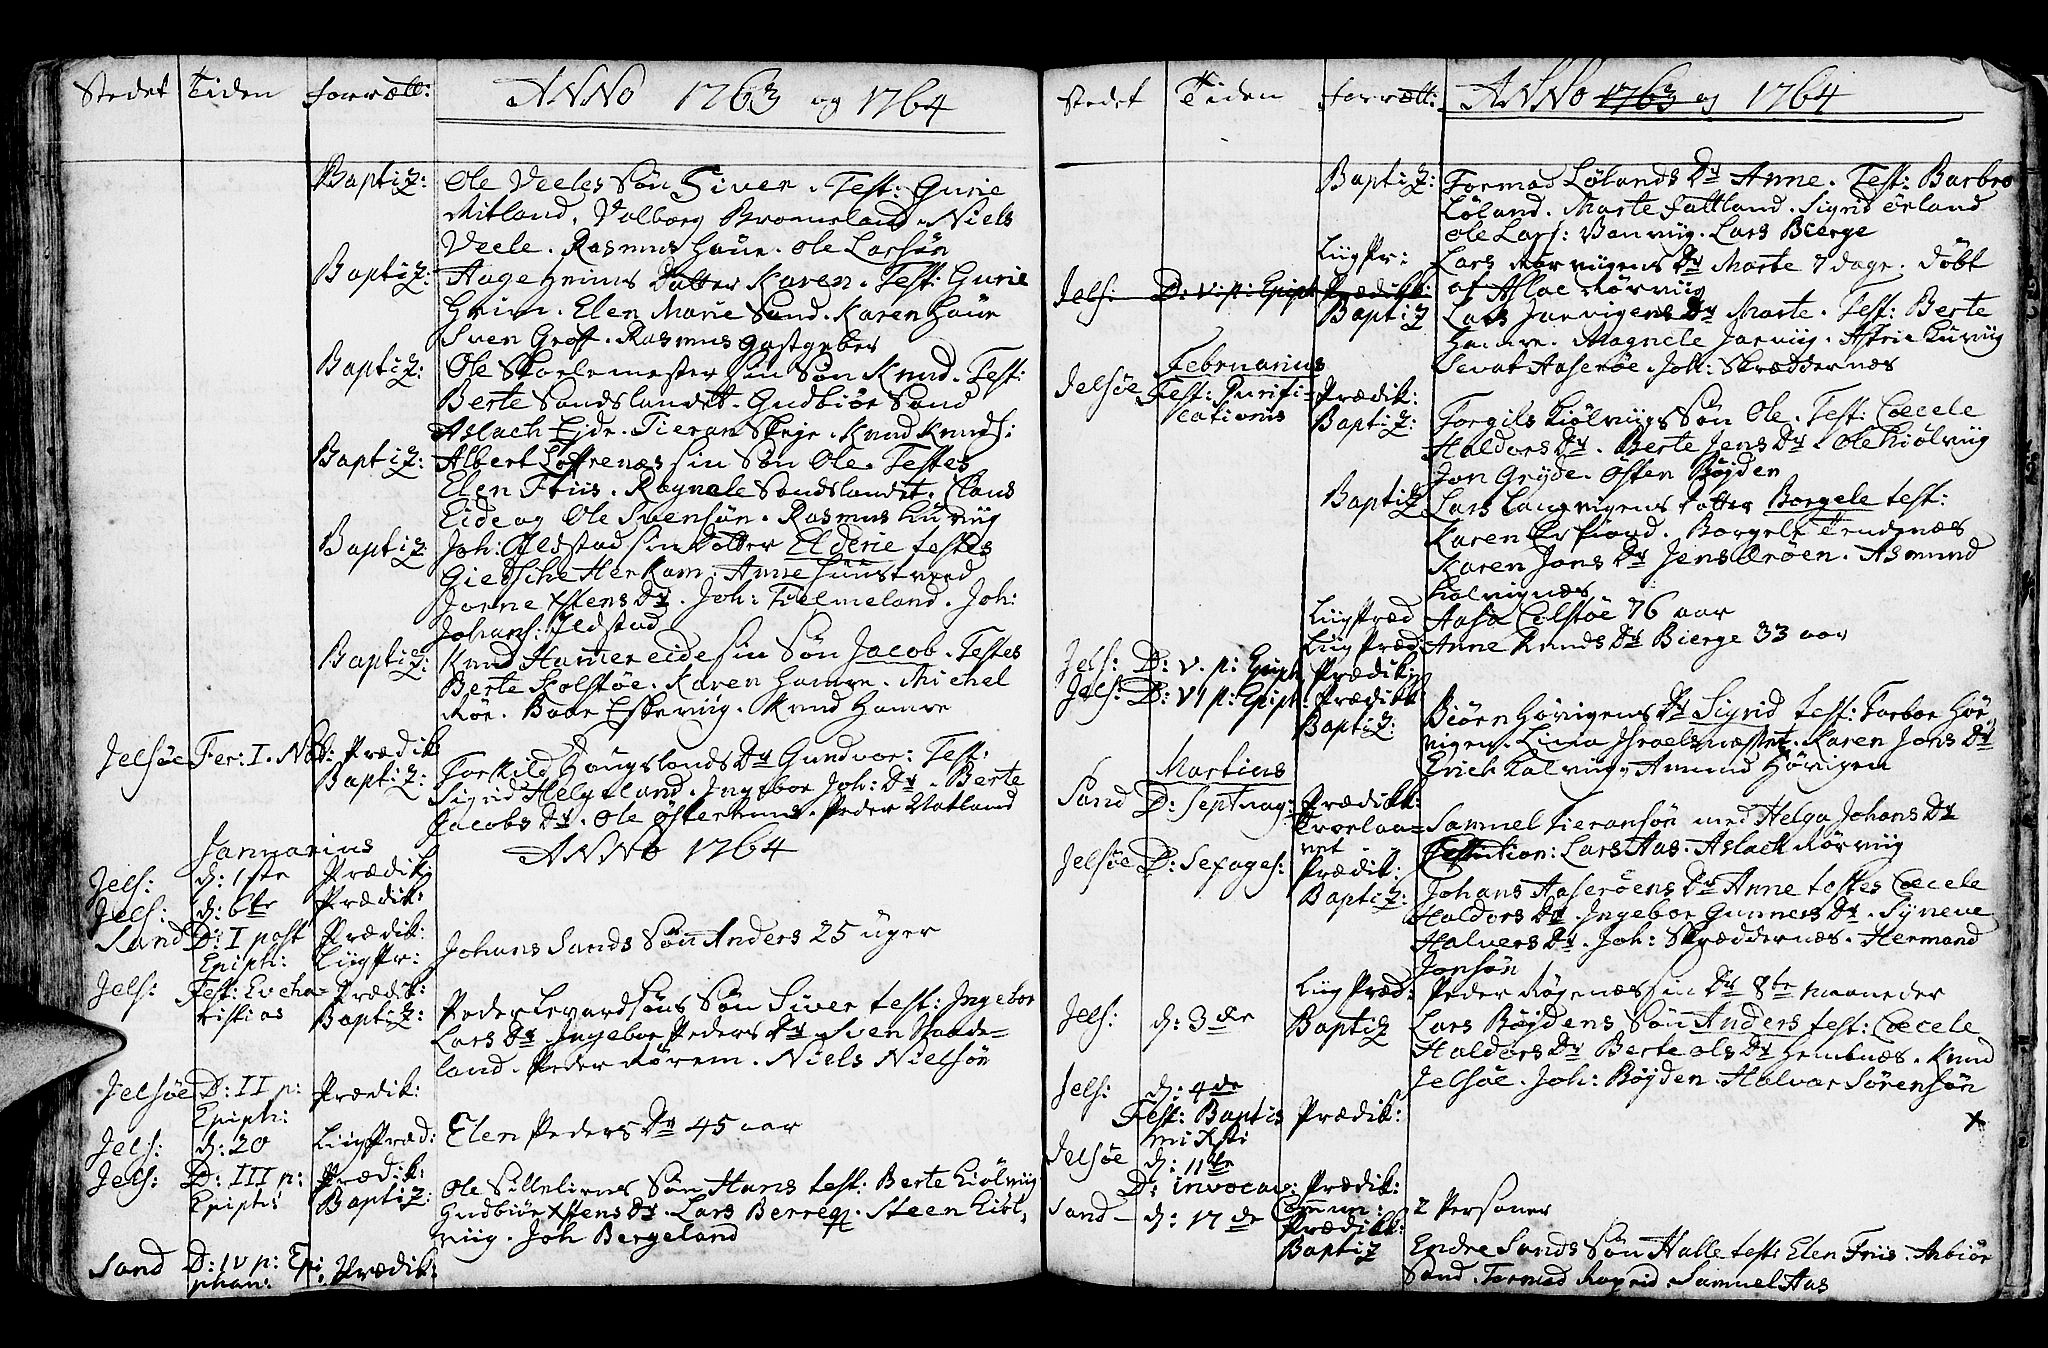 Stedet Tiden forrætt: ANNO 1763 og 1764
Baptiz: Ole Veeles Søn Siver. Test: Gurie
Mitland, Valborg Bromeland. Niels
Veele. Rasmus Haue. Ole Larsøn
Baptiz: Aage Heims Datter Karen. Test: Gurie
Heim. Elen Marie Sand. Karen Haue
Sven Groff. Rasmus Gastgeber
Baptiz: Ole Skolemester sin Søn Knud. Test:
Berte Sandslandet. Gudbiør Sand
Aslach Eide. Tieran Skeje. Knud Knuds:
Baptiz: Albert Løffrenæs sin Søn Ole. Testes
Elen Friis. Ragnele Sandslandet. Claus
Eide og Ole Svensøn. Rasmus Hurviig
Baptiz: Joh: Jldstad sin Datter Elderie testes
Giertsche Herkam. Anne Huustveed
Jorne Xstens Dr. Joh: Tielmeland. Joh:
Johans: Jldstad
Baptiz: Knud Hamereide sin Søn Jacob. Testes
Berte Kolstøe. Karen Hamre. Michel
Røe. Baar Eskeviig. Knud Hamre
Jelsøe Fer: I. Nat: Prædik:
Baptiz: Torkild Haugslands Dr Gundvor: Test:
Sigrid Helgeland. Ingebor Joh: Dr. Berte
Jacobs Dr. Ole Østerhuus. Peder Vatland
Januarius ANNO 1764
Jels: d: 1ste Prædik:
Jels: d: 6te Prædik:
Sand D: I post Prædik:
Epiph: LiigPr: Johans Sands Søn Anders 25 uger
Jels: Fest: Eucha- Prædik:
ristias Baptiz: Peder Levardsøns Søn Siver test: Ingebor
Lars Dr. Ingebor Peders Dr. Sven Haade-
land. Peder Rørem. Niels Nielsøn
Jelsøe D: II p: Prædik:
Epiph:
Jels: d: 20 LiigPræd: Elen Peders Dr 45 aar
Jels: D: III p: Prædik:
Epiph: Baptiz: Ole Silleliens Søn Hans test: Berte Kiølviig
Gudbiør Xstens Dr. Lars Berreg. Steen Kiøl-
viig. Joh Bergeland
Sand D: IV p: Epi- Prædik:
phan:
Stedet Tiden forrætt: ANNO 1763 og 1764
Baptiz: Tormod Lølands Dr Anne. Test: Barbro
Løland. Marte Fattland. Sigrid Ørland
Ole Lars: Vanviig. Lars Bierge
LiigPr: Lars Rørviigens Dr Marte 7 dage. døbt
af Aslac Rørviig
Jels: D: V: p: Epiph Prædik:
Baptiz Lars Jarvigens Dr Marte. Test: Berte
Hamre. Magnele Jarviig. Astrie Kurviig
Sevat Aaserøe. Joh: Skræddernæs
Februarius
Jelsøe Fest: Purifi- Prædik:
cationis Baptiz: Torgils Kiølviigs Søn Ole. Test: Cecele
Haldors Dr. Berte Jens Dr. Ole Kiølviig
Jon Gryde. Østen Bøjden
Baptiz Lars Langvigens Datter Borgele test:
Karen Erfiord. Borgele Tendenæs
Karen Jons Dr Jens Ærøen. Asmund
Kalvignæs
LiigPræd Aasa Eilstøe 76 aar
LiigPræd: Anne Knuds Dr Bierge 33 aar
Jels: D: V. p: Epiph Prædik:
Jels: D: VI p: Epiph: Prædik
Baptiz: Biøen Høvigens Dr Sigrid test: Torbor Høe
vigen. Lina Jsraelsnæsset. Karen Jons Dr
Erich Kalviig. Amund Høvigen
Martius
Sand D: Septuag: Prædik:
Troelaa- Samuel Tieransøn med Helga Johans Dr
vet Cautution: Lars Aas. Aslach Rørviig
Jelsøe D: Sexages: Prædik:
Baptiz: Johans Aaserøens Dr Anne testes Cecele
Haldors Dr. Ingebor Gunners Dr. Syneve
Halvers Dr. Joh: Skræddernæs. Hermand
Jonsøn
LiigPræd: Peder Røgenæs sin Dr 8te maaneder
Jels: d: 3de Baptiz Lars Bøjdens Søn Anders test: Cecele
Haldors Dr Berte Ols Dr Hembnæs. Knud
Jelsøe. Joh: Bøjden. Halvar Sørensøn
Jels: d: 4de
Fest: Baptis Prædik: X
mi Xsti
Jelsøe d: 11te
D: invocav: Prædik:
Comun: 2 Personer
Sand d: 17de Prædik:
Baptiz Endre Sands Søn Halle test: Elen Friis. Anbiør
Sand. Tormod Ragrid. Samuel Aas